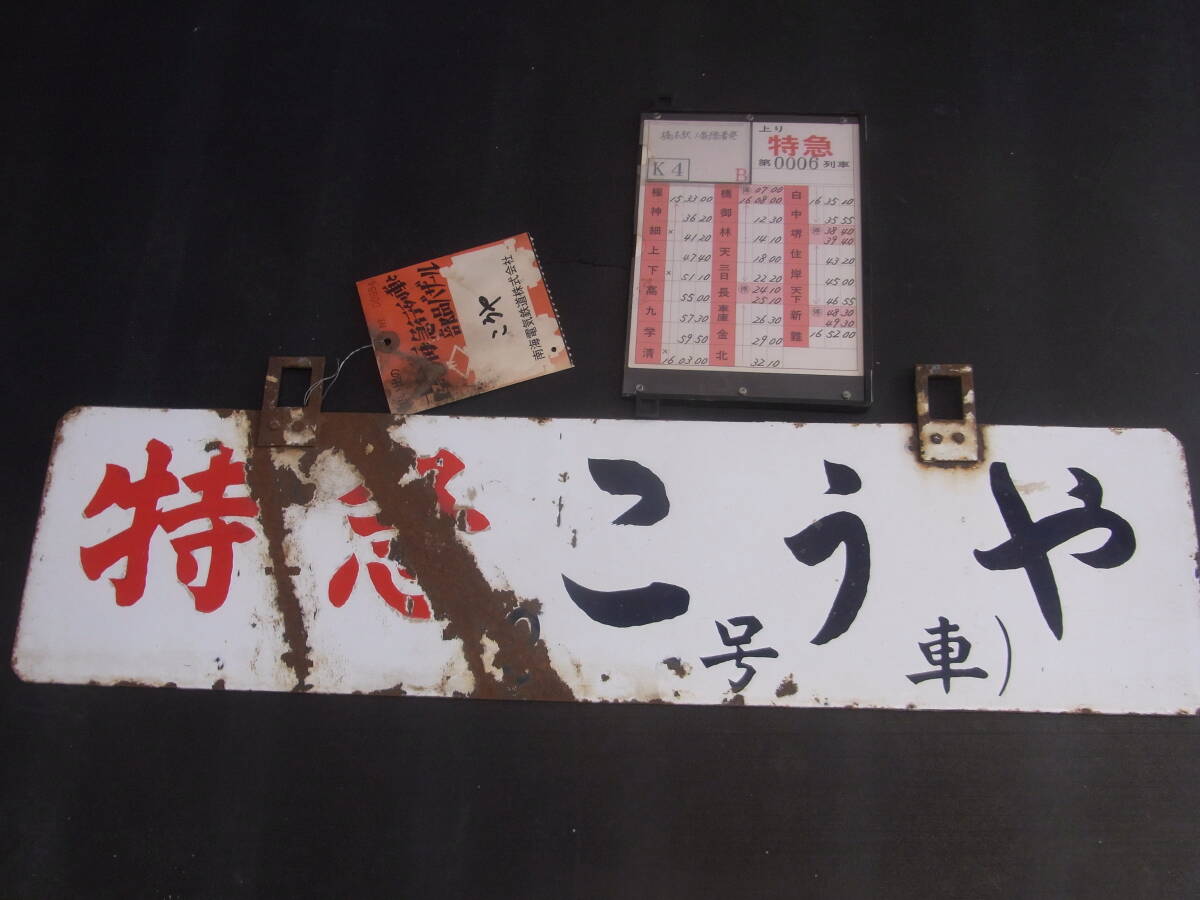 上り
特急
第0006列車
K4
B
極 15 33 00
神 36 20
細 × 41 20
上 47 40
下 × 51 10
高 55 00
九 57 30
学 59 50
清 × 16 03 00
橋 停 07 00
16 08 00
御 12 30
林 14 10
天 18 00
三日 22 20
長 停 24 10
25 10
車庫 26 30
金 29 00
北 32 10
白 16 35 10
中 35 55
堺 停 38 40
39 40
住 43 20
岸 45 00
天下 46 55
新 停 48 30
49 30
難 16 52 00
部品バザール
こうや
南海電気鉄道株式会社
特急 こうや
号 車)